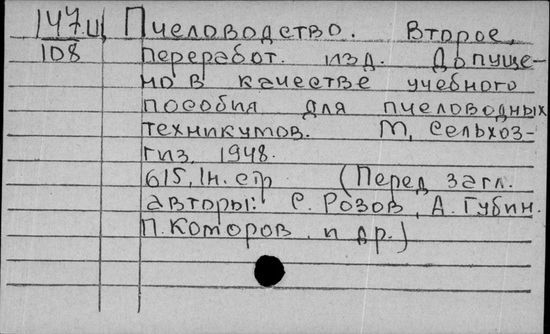 147.II Пчеловодство. Второе,
108 переработ. изд. Допуще-
но в качестве учебного
пособия для пчеловодных
техникумов. М, Сельхоз-
гиз, 1948.
615, 1н. стр (Перед загл.
авторы: С. Розов, А. Губин.
П. Комаров и др.)